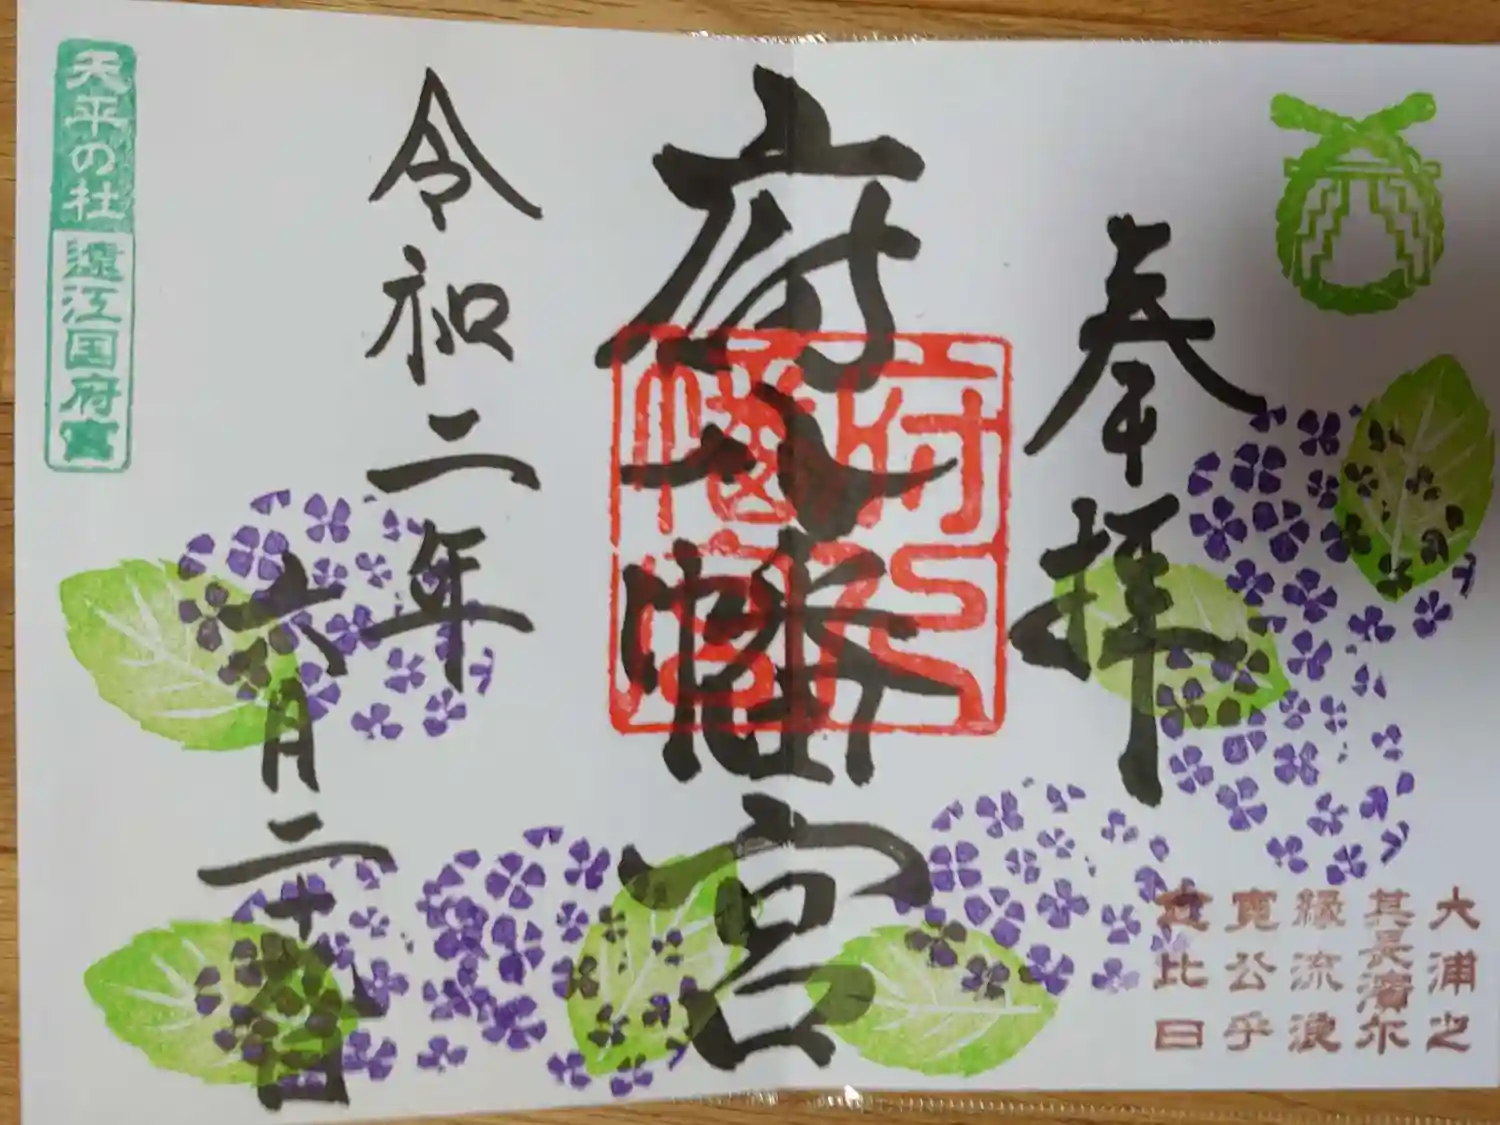 奉拝
府八幡宮
令和二年
六月二十日
天平の社 遠江国府宮
大浦之
其長濱尓
縁流浪
寛公乎
念比日